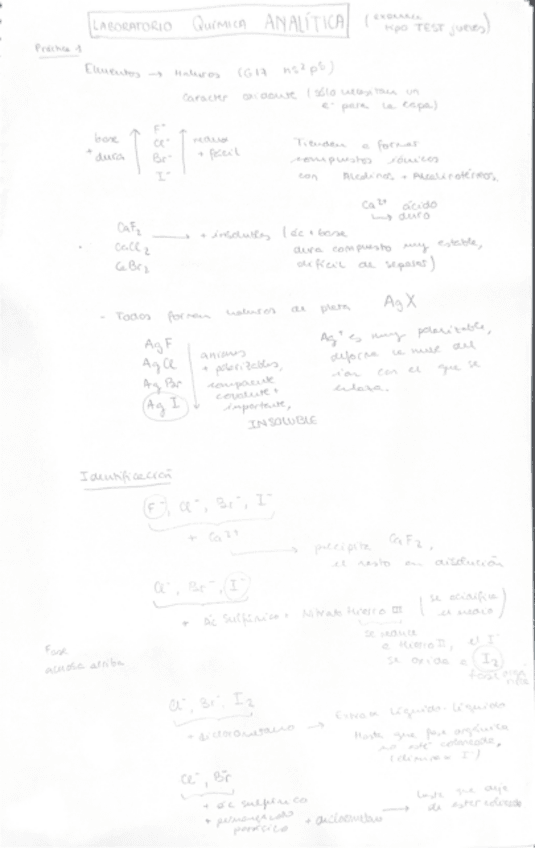 LABORATORIO QUÍMICA ANALÍTICA (examen
tipo TEST jueves)
Práctica 1
Elementos → Haluros (G17 ns²p⁵)
caracter oxidante (sólo necesitan un
e⁻ para la capa)
base
+ dura
F⁻
Cl⁻
Br⁻
I⁻
+ fácil
Tienden a formar
compuestos iónicos
con Alcalinos + Alcalinotérreos
Ca²⁺ ácido
↳ duro
CaF₂ → + insolubles (ác + base
CaCl₂ dura compuesto muy estable,
CaBr₂ difícil de separar)
- Todos forman haluros de plata AgX
AgF
AgCl
AgBr
AgI
aniones
+ polarizables,
componente
covalente +
importante,
INSOLUBLE
Ag⁺ es muy polarizable,
deforma la nube del
ion con el que se
enlaza.
Identificación
F⁻, Cl⁻, Br⁻, I⁻
+ Ca²⁺
→ precipita CaF₂,
el resto en disolución
Cl⁻, Br⁻, I⁻
+ ác sulfúrico + Nitrato hierro III (se acidifica
el medio)
se reduce
a hierro II, el I⁻
se oxida a I₂
Fase
acuosa arriba
Cl⁻, Br⁻, I₂
+ diclorometano → Extracc líquido-líquido
Hasta que fase orgánica
no esté coloreada,
(elimina I⁻)
Cl⁻, Br⁻
+ ác sulfúrico
+ permanganato
potásico + diclorometano → hasta que deje
de estar coloreado